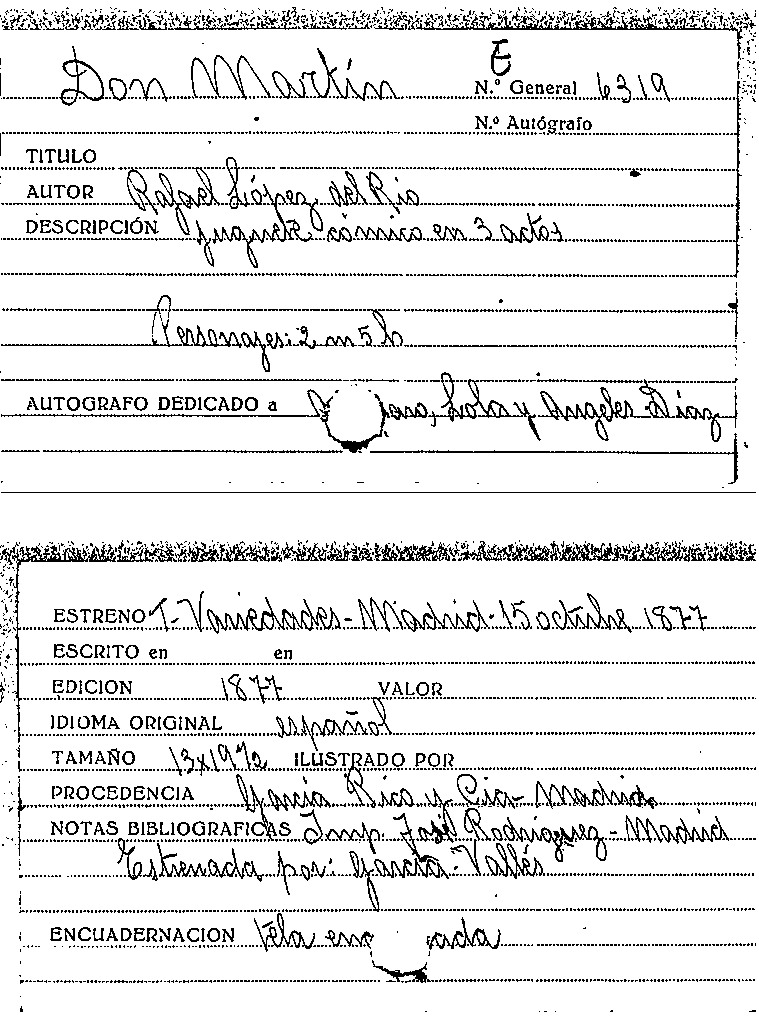 E
Don Martín N.º General 6319
N.º Autógrafo
TITULO
AUTOR Rafael López del Rio
DESCRIPCIÓN Juguete cómico en 3 actos
Personajes: 2 m 5 h
AUTOGRAFO DEDICADO a Lola y Angeles Diaz
ESTRENO T- Variedades - Madrid - 15 octubre 1877
ESCRITO en en
EDICION 1877 VALOR
IDIOMA ORIGINAL español
TAMAÑO 13x19 1/2 ILUSTRADO POR
PROCEDENCIA García Rico y Cia - Madrid.
NOTAS BIBLIOGRAFICAS Imp. José Rodriguez - Madrid
Estrenada por: García - Vallés
ENCUADERNACION Tela